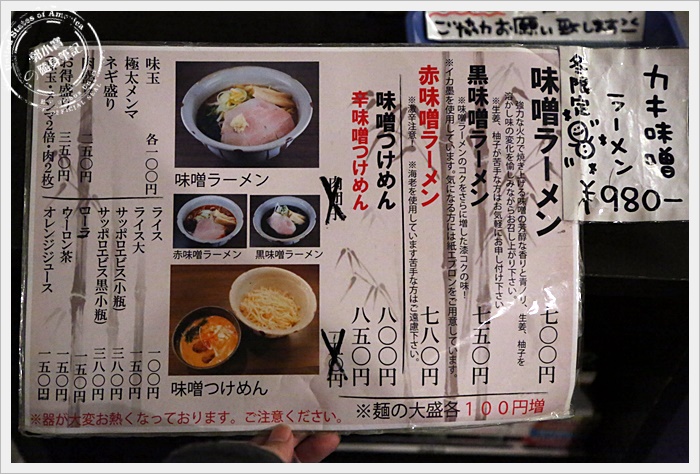 ご協力お願い致します
カキ味噌
ラーメン
冬限定
980-
味噌ラーメン
七〇〇円
強力な火力で焼き上げる味噌の芳醇な香りと青ノリ、生姜、柚子を
溶かし味の変化を愉しみながらお召し上がり下さい。
※生姜、柚子が苦手な方はお気軽にお申し付け下さい
黒味噌ラーメン
七五〇円
※味噌ラーメンのコクをさらに増した漆コクの味!
※イカ墨を使用しています。気になる方には紙エプロンをご用意しています。
赤味噌ラーメン
七八〇円
※激辛注意!
※海老を使用しています苦手な方はご遠慮下さい。
味噌つけめん
八〇〇円
辛味噌つけめん
八五〇円
※麺の大盛各100円増
味噌ラーメン
赤味噌ラーメン
黒味噌ラーメン
味噌つけめん
味玉
極太メンマ
ネギ盛り
各一〇〇円
二五〇円
お得盛り
三五〇円
玉・メンマ2倍・肉2枚)
ライス 一〇〇円
ライス大 一五〇円
サッポロエビス(小瓶) 三八〇円
サッポロエビス黒(小瓶) 三八〇円
コーラ 一五〇円
ウーロン茶 一五〇円
オレンジジュース 一五〇円
※器が大変お熱くなっております。ご注意ください。